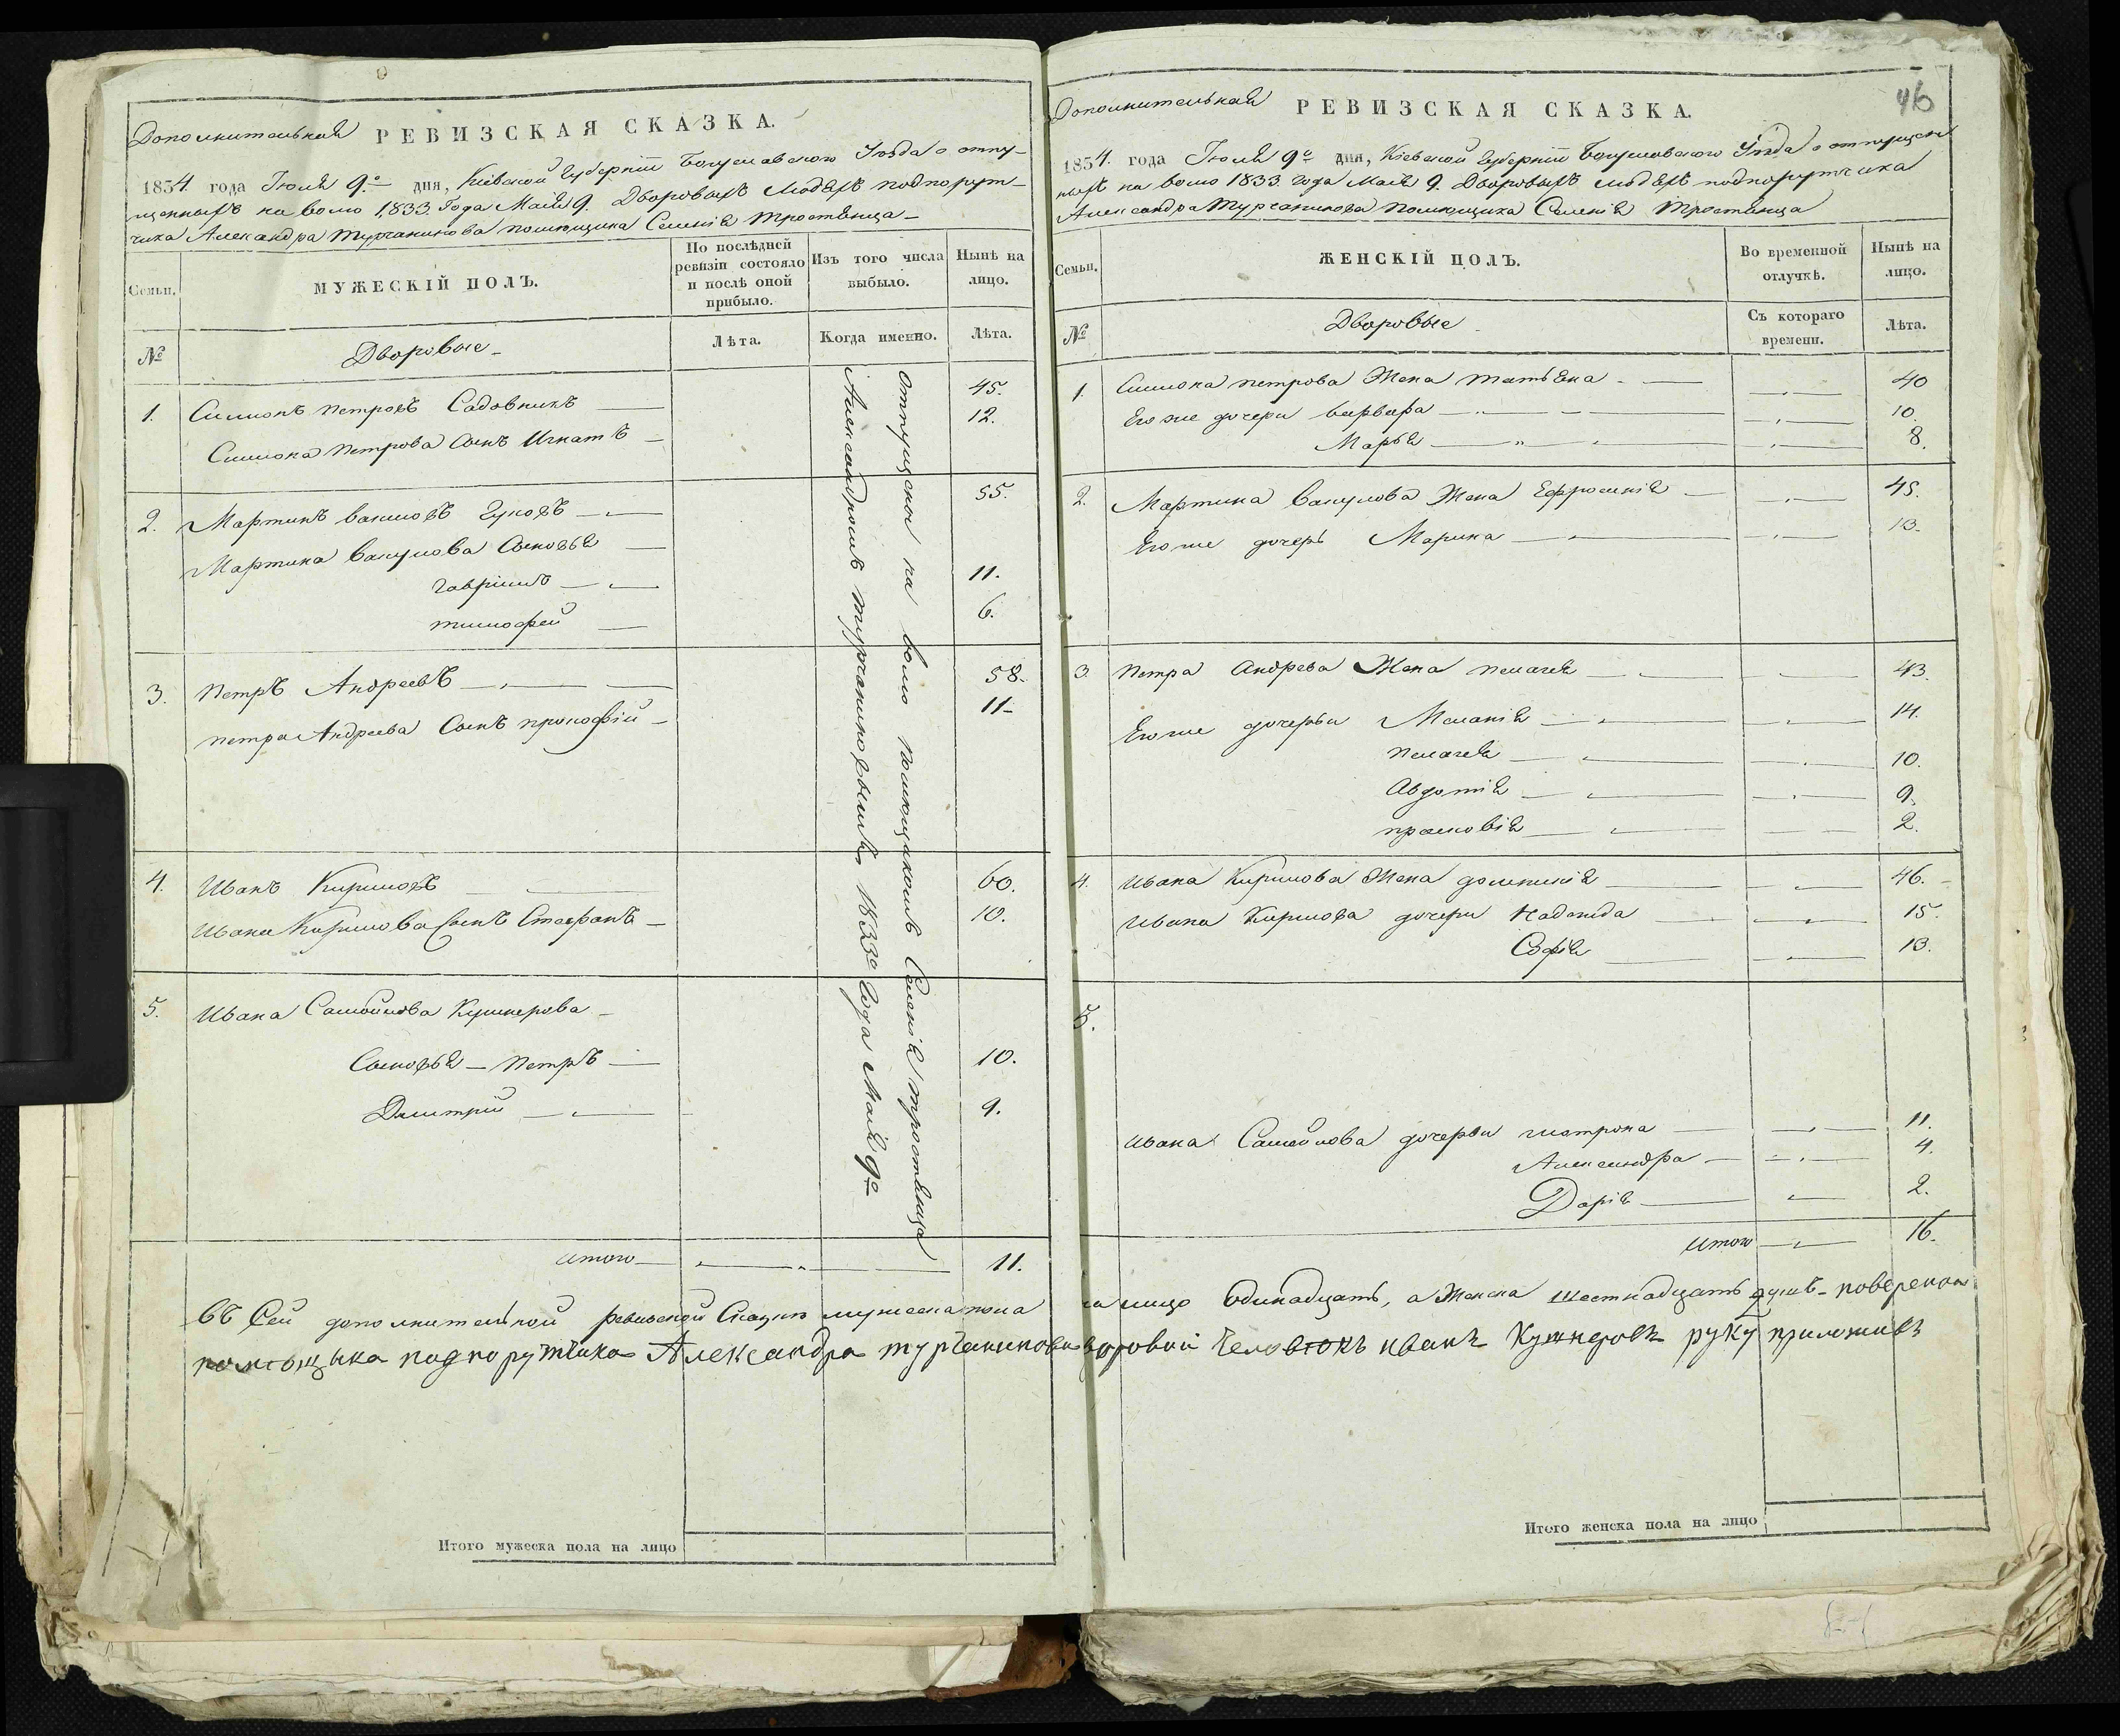 Дополнительная РЕВИЗСКАЯ СКАЗКА.
1834 года Іюля 9го дня, Кіевской Губерніи Богуславского Уѣзда о отпу-
щенныхъ на волю 1833. Года Маія 9. Дворовыхъ людяхъ подпорут-
чика Александра Турчанинова помѣщика Селенія Тростянца
Семьи.
МУЖЕСКІЙ ПОЛЪ.
По послѣдней ревизіи состояло и послѣ оной прибыло.
Изъ того числа выбыло.
Нынѣ на лицо.
№ Дворовые Лѣта. Когда именно. Лѣта.
1. Симионъ Петровъ Садовникъ 45.
Симиона Петрова Сынъ Игнатъ 12.
2. Мартинъ Вакуловъ 55.
Мартина Вакулова Сыновья
Гавріилъ 11.
Тимофей 6.
3. Петръ Андреевъ 58.
Петра Андреева Сынъ Прокофій 11
4. Иванъ Кириловъ 60.
Ивана Кирилова Сынъ Стефанъ 10.
5. Ивана Самойлова Кушнерова
Сыновья Петръ 10.
Дмитрій 9.
Отпущены на волю помѣщикомъ Селенія Тростянца
Александромъ Турчаниновымъ 1833го Года Маія 9го
Итого 11.
Въ Сей дополнительной ревизской Сказкѣ мужеска пола
помѣщыка подпорутчика Александра Турчанинова
Итого мужеска пола на лицо
46
Дополнительная РЕВИЗСКАЯ СКАЗКА.
1834. года Іюля 9го дня, Кіевской Губерніи Богуславского Уѣзда о отпущен
ныхъ на волю 1833. года Маія 9. Дворовыхъ людяхъ подпорутчика
Александра Турчанинова помѣщика Селенія Тростянца
Семьи.
ЖЕНСКІЙ ПОЛЪ.
Во временной отлучкѣ.
Нынѣ на лицо.
№ Дворовые Съ котораго времени. Лѣта.
1. Симиона Петрова Жена Татьяна 40
Его же дочери Варвара 10
Марья 8.
2. Мартина Вакулова Жена Ефросинія 45.
Его же дочерь Марина 13.
3. Петра Андреева Жена Пелагея 43.
Его же дочерьи Меланія 14.
Пелагея 10.
Авдотія 9.
Прасковія 2.
4. Ивана Кирилова Жена Доминикія 46.
Ивана Кирилова дочери Надежда 15.
Софія 13.
5.
Ивана Самойлова дочерьи Матрона 11.
Александра 4.
Дарія 2.
Итого 16.
на лицо Одинадцать, а Женска Шестнадцать душъ
дворовий Человѣкъ иванъ Кушнеровъ руку приложивъ
Итого женска пола на лицо